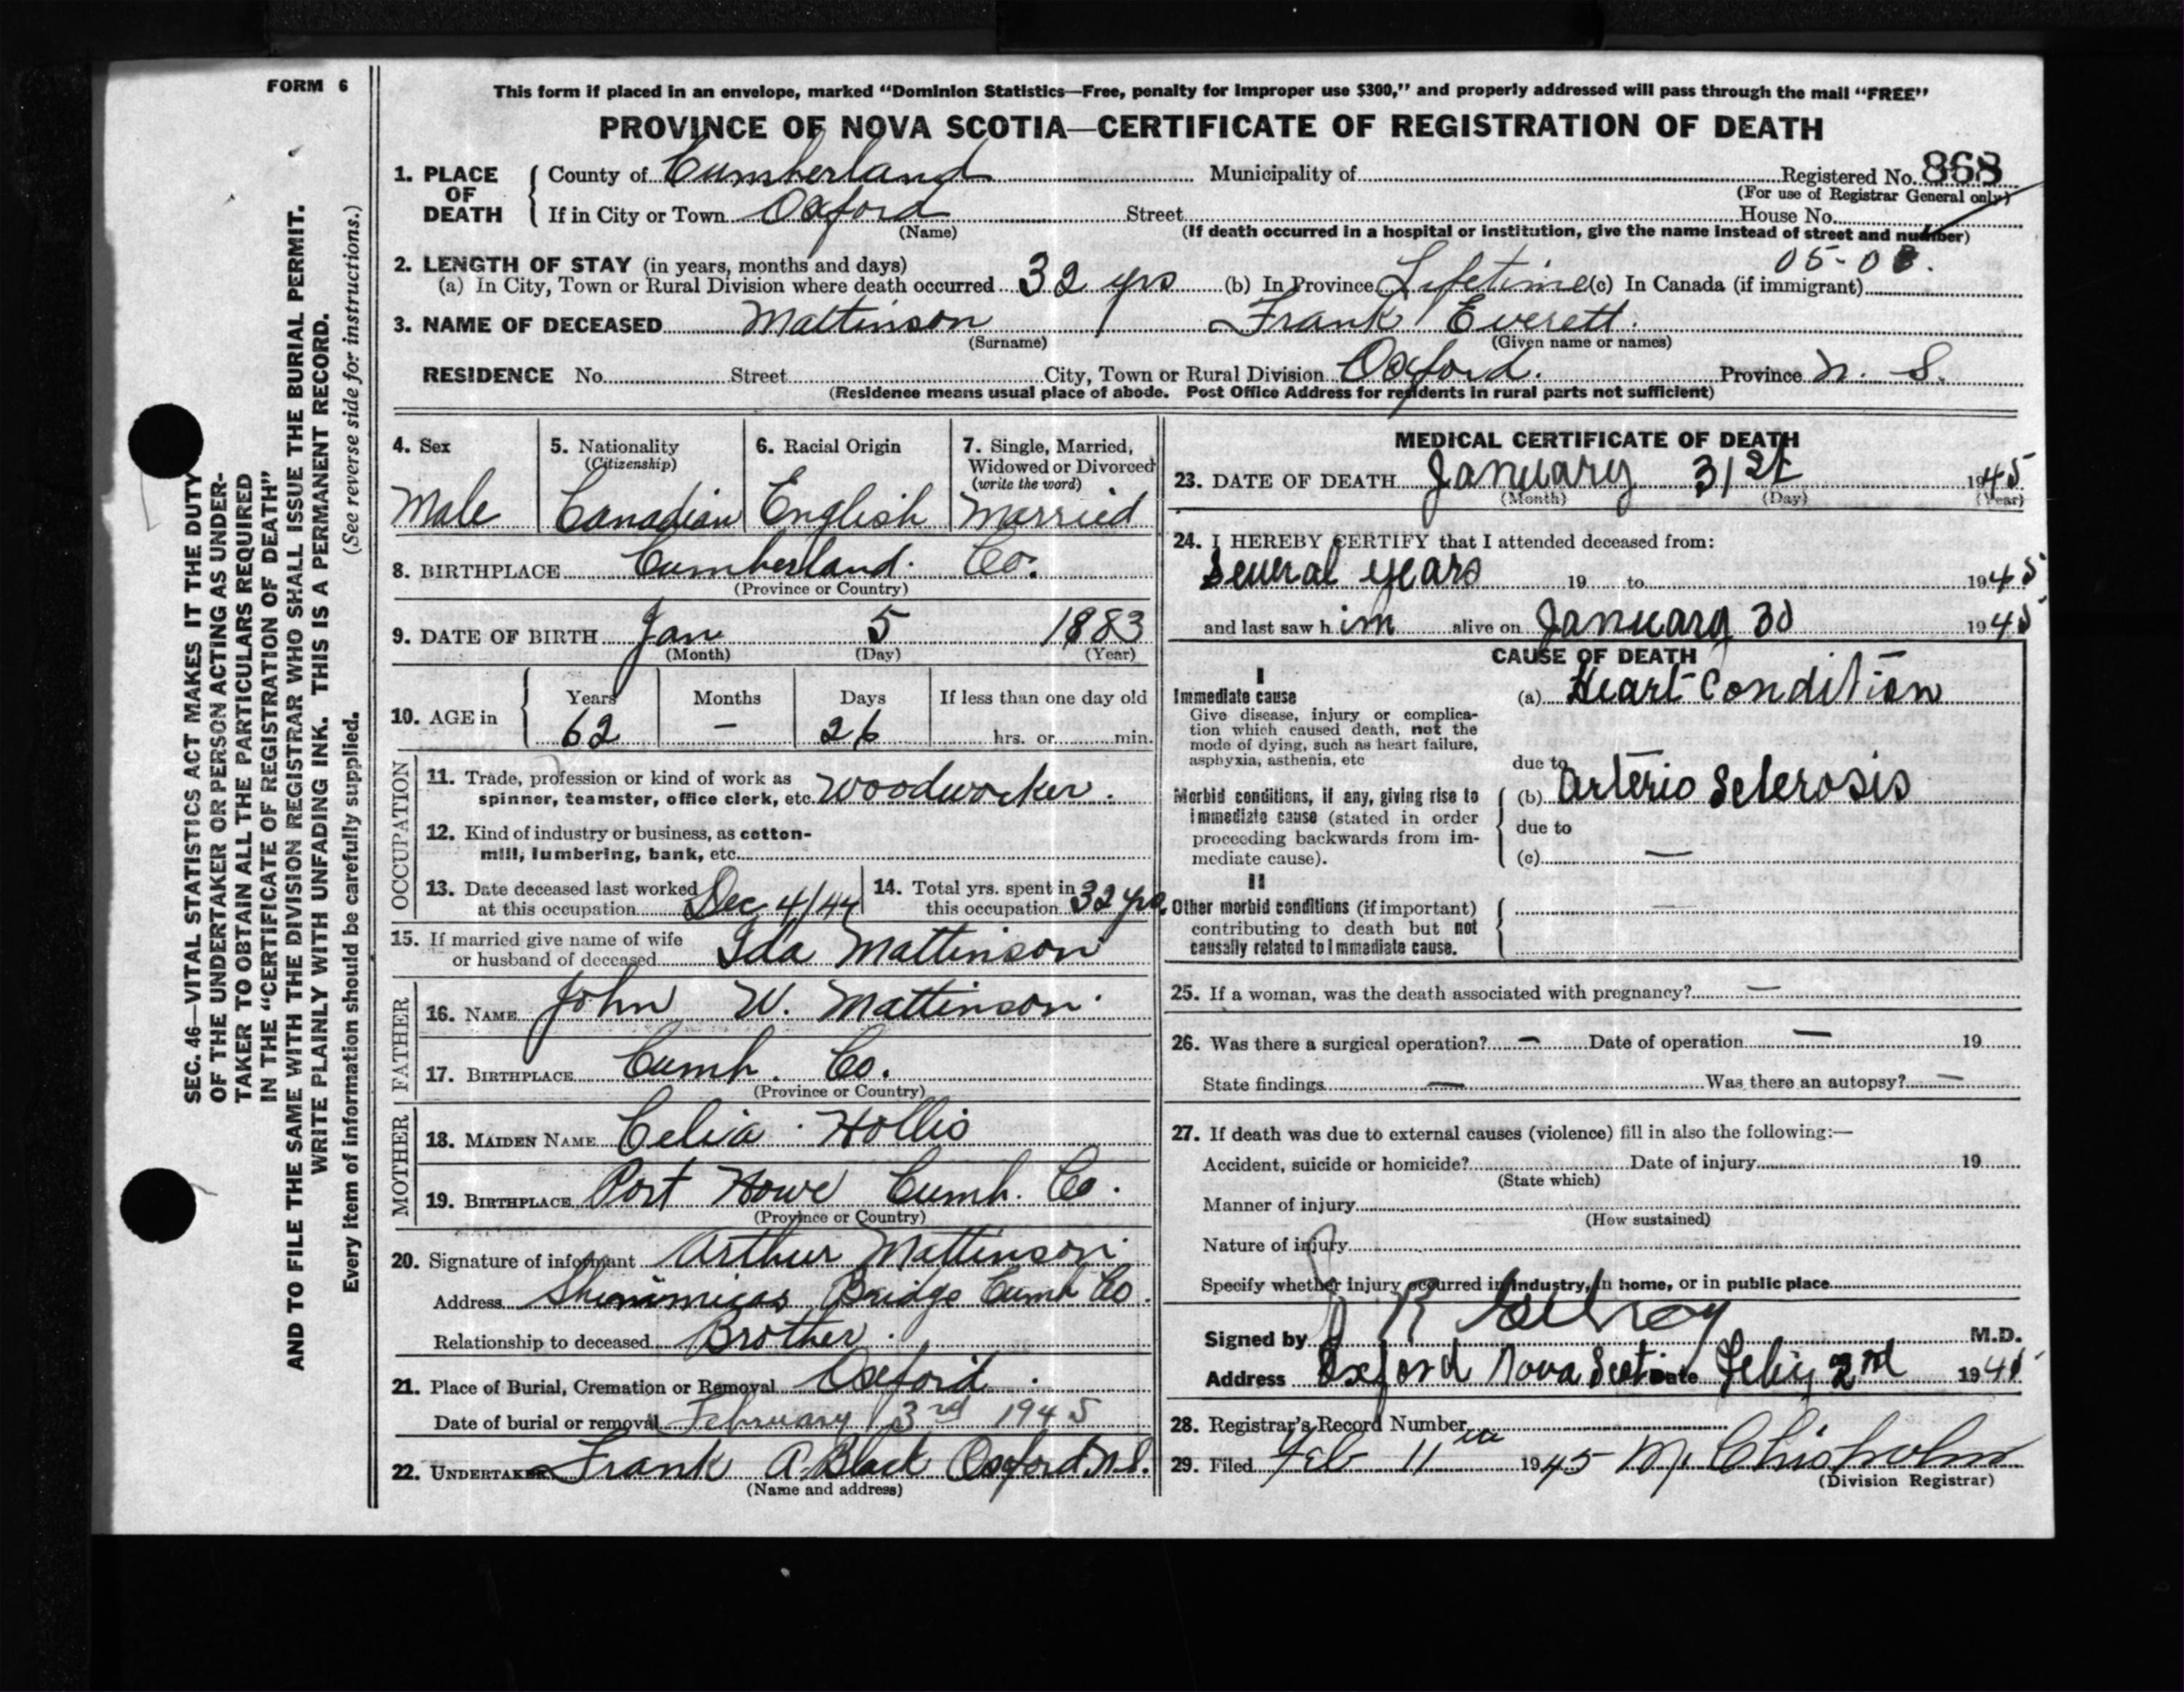 FORM 6
This form if placed in an envelope, marked "Dominion Statistics—Free, penalty for improper use $300," and properly addressed will pass through the mail "FREE"
PROVINCE OF NOVA SCOTIA—CERTIFICATE OF REGISTRATION OF DEATH
1. PLACE OF DEATH { County of Cumberland Municipality of Registered No. 868
(For use of Registrar General only)
If in City or Town Oxford Street House No.
(Name) (If death occurred in a hospital or institution, give the name instead of street and number)
2. LENGTH OF STAY (in years, months and days) 05-0
(a) In City, Town or Rural Division where death occurred 32 yrs (b) In Province Lifetime (c) In Canada (if immigrant)
3. NAME OF DECEASED Mattinson Frank Everett.
(Surname) (Given name or names)
RESIDENCE No. Street City, Town or Rural Division Oxford. Province N. S.
(Residence means usual place of abode. Post Office Address for residents in rural parts not sufficient)
4. Sex 5. Nationality (Citizenship) 6. Racial Origin 7. Single, Married, Widowed or Divorced (write the word)
Male Canadian English Married
8. BIRTHPLACE Cumberland. Co.
(Province or Country)
9. DATE OF BIRTH Jan 5 1883
(Month) (Day) (Year)
10. AGE in { Years Months Days If less than one day old
62 — 26 hrs. or min.
OCCUPATION
11. Trade, profession or kind of work as
spinner, teamster, office clerk, etc. Woodworker.
12. Kind of industry or business, as cotton-
mill, lumbering, bank, etc.
13. Date deceased last worked at this occupation Dec 4/44
14. Total yrs. spent in this occupation 32 yrs.
15. If married give name of wife
or husband of deceased Ida Mattinson
FATHER
16. NAME John W. Mattinson.
17. BIRTHPLACE Cumb. Co.
(Province or Country)
MOTHER
18. MAIDEN NAME Celia Hollis
19. BIRTHPLACE Port Howe Cumb. Co.
(Province or Country)
20. Signature of informant Arthur Mattinson.
Address Shinimicas Bridge Cumb Co.
Relationship to deceased Brother.
21. Place of Burial, Cremation or Removal Oxford.
Date of burial or removal February 3rd 1945
22. UNDERTAKER Frank A. Black Oxford N.S.
(Name and address)
MEDICAL CERTIFICATE OF DEATH
23. DATE OF DEATH January 31st 1945
(Month) (Day) (Year)
24. I HEREBY CERTIFY that I attended deceased from:
Several years 19 to 1945
and last saw him alive on January 30 1945
CAUSE OF DEATH
I
Immediate cause (a) Heart Condition
Give disease, injury or complica-
tion which caused death, not the
mode of dying, such as heart failure,
asphyxia, asthenia, etc
due to
Morbid conditions, if any, giving rise to (b) Arterio Sclerosis
immediate cause (stated in order
proceeding backwards from im-
mediate cause).
due to
(c) —
II
Other morbid conditions (if important)
contributing to death but not
causally related to immediate cause.
25. If a woman, was the death associated with pregnancy? —
26. Was there a surgical operation? — Date of operation — 19
State findings — Was there an autopsy? —
27. If death was due to external causes (violence) fill in also the following:—
Accident, suicide or homicide? Date of injury 19
(State which)
Manner of injury
(How sustained)
Nature of injury
Specify whether injury occurred in industry, in home, or in public place
Signed by M.D.
Address Oxford Nova Scotia Date Feby 2nd 1945
28. Registrar's Record Number
29. Filed Feb 11th 1945 M. Chisholm
(Division Registrar)
SEC. 46—VITAL STATISTICS ACT MAKES IT THE DUTY
OF THE UNDERTAKER OR PERSON ACTING AS UNDER-
TAKER TO OBTAIN ALL THE PARTICULARS REQUIRED
IN THE "CERTIFICATE OF REGISTRATION OF DEATH"
AND TO FILE THE SAME WITH THE DIVISION REGISTRAR WHO SHALL ISSUE THE BURIAL PERMIT.
WRITE PLAINLY WITH UNFADING INK. THIS IS A PERMANENT RECORD.
Every item of information should be carefully supplied. (See reverse side for instructions.)